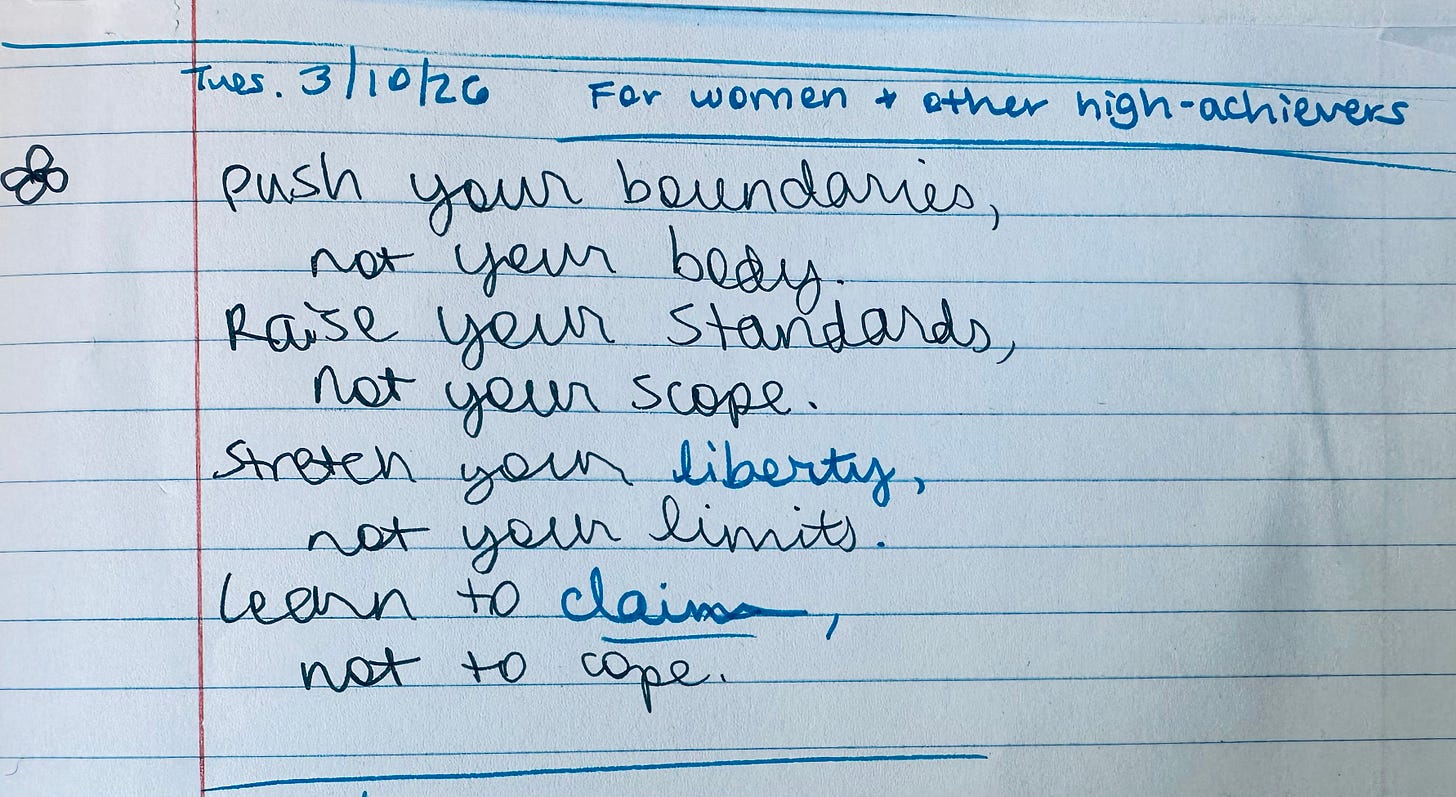 Tues. 3/10/26 For women + other high-achievers
push your boundaries,
not your body.
Raise your standards,
not your scope.
Stretch your liberty,
not your limits.
Learn to claim,
not to cope.